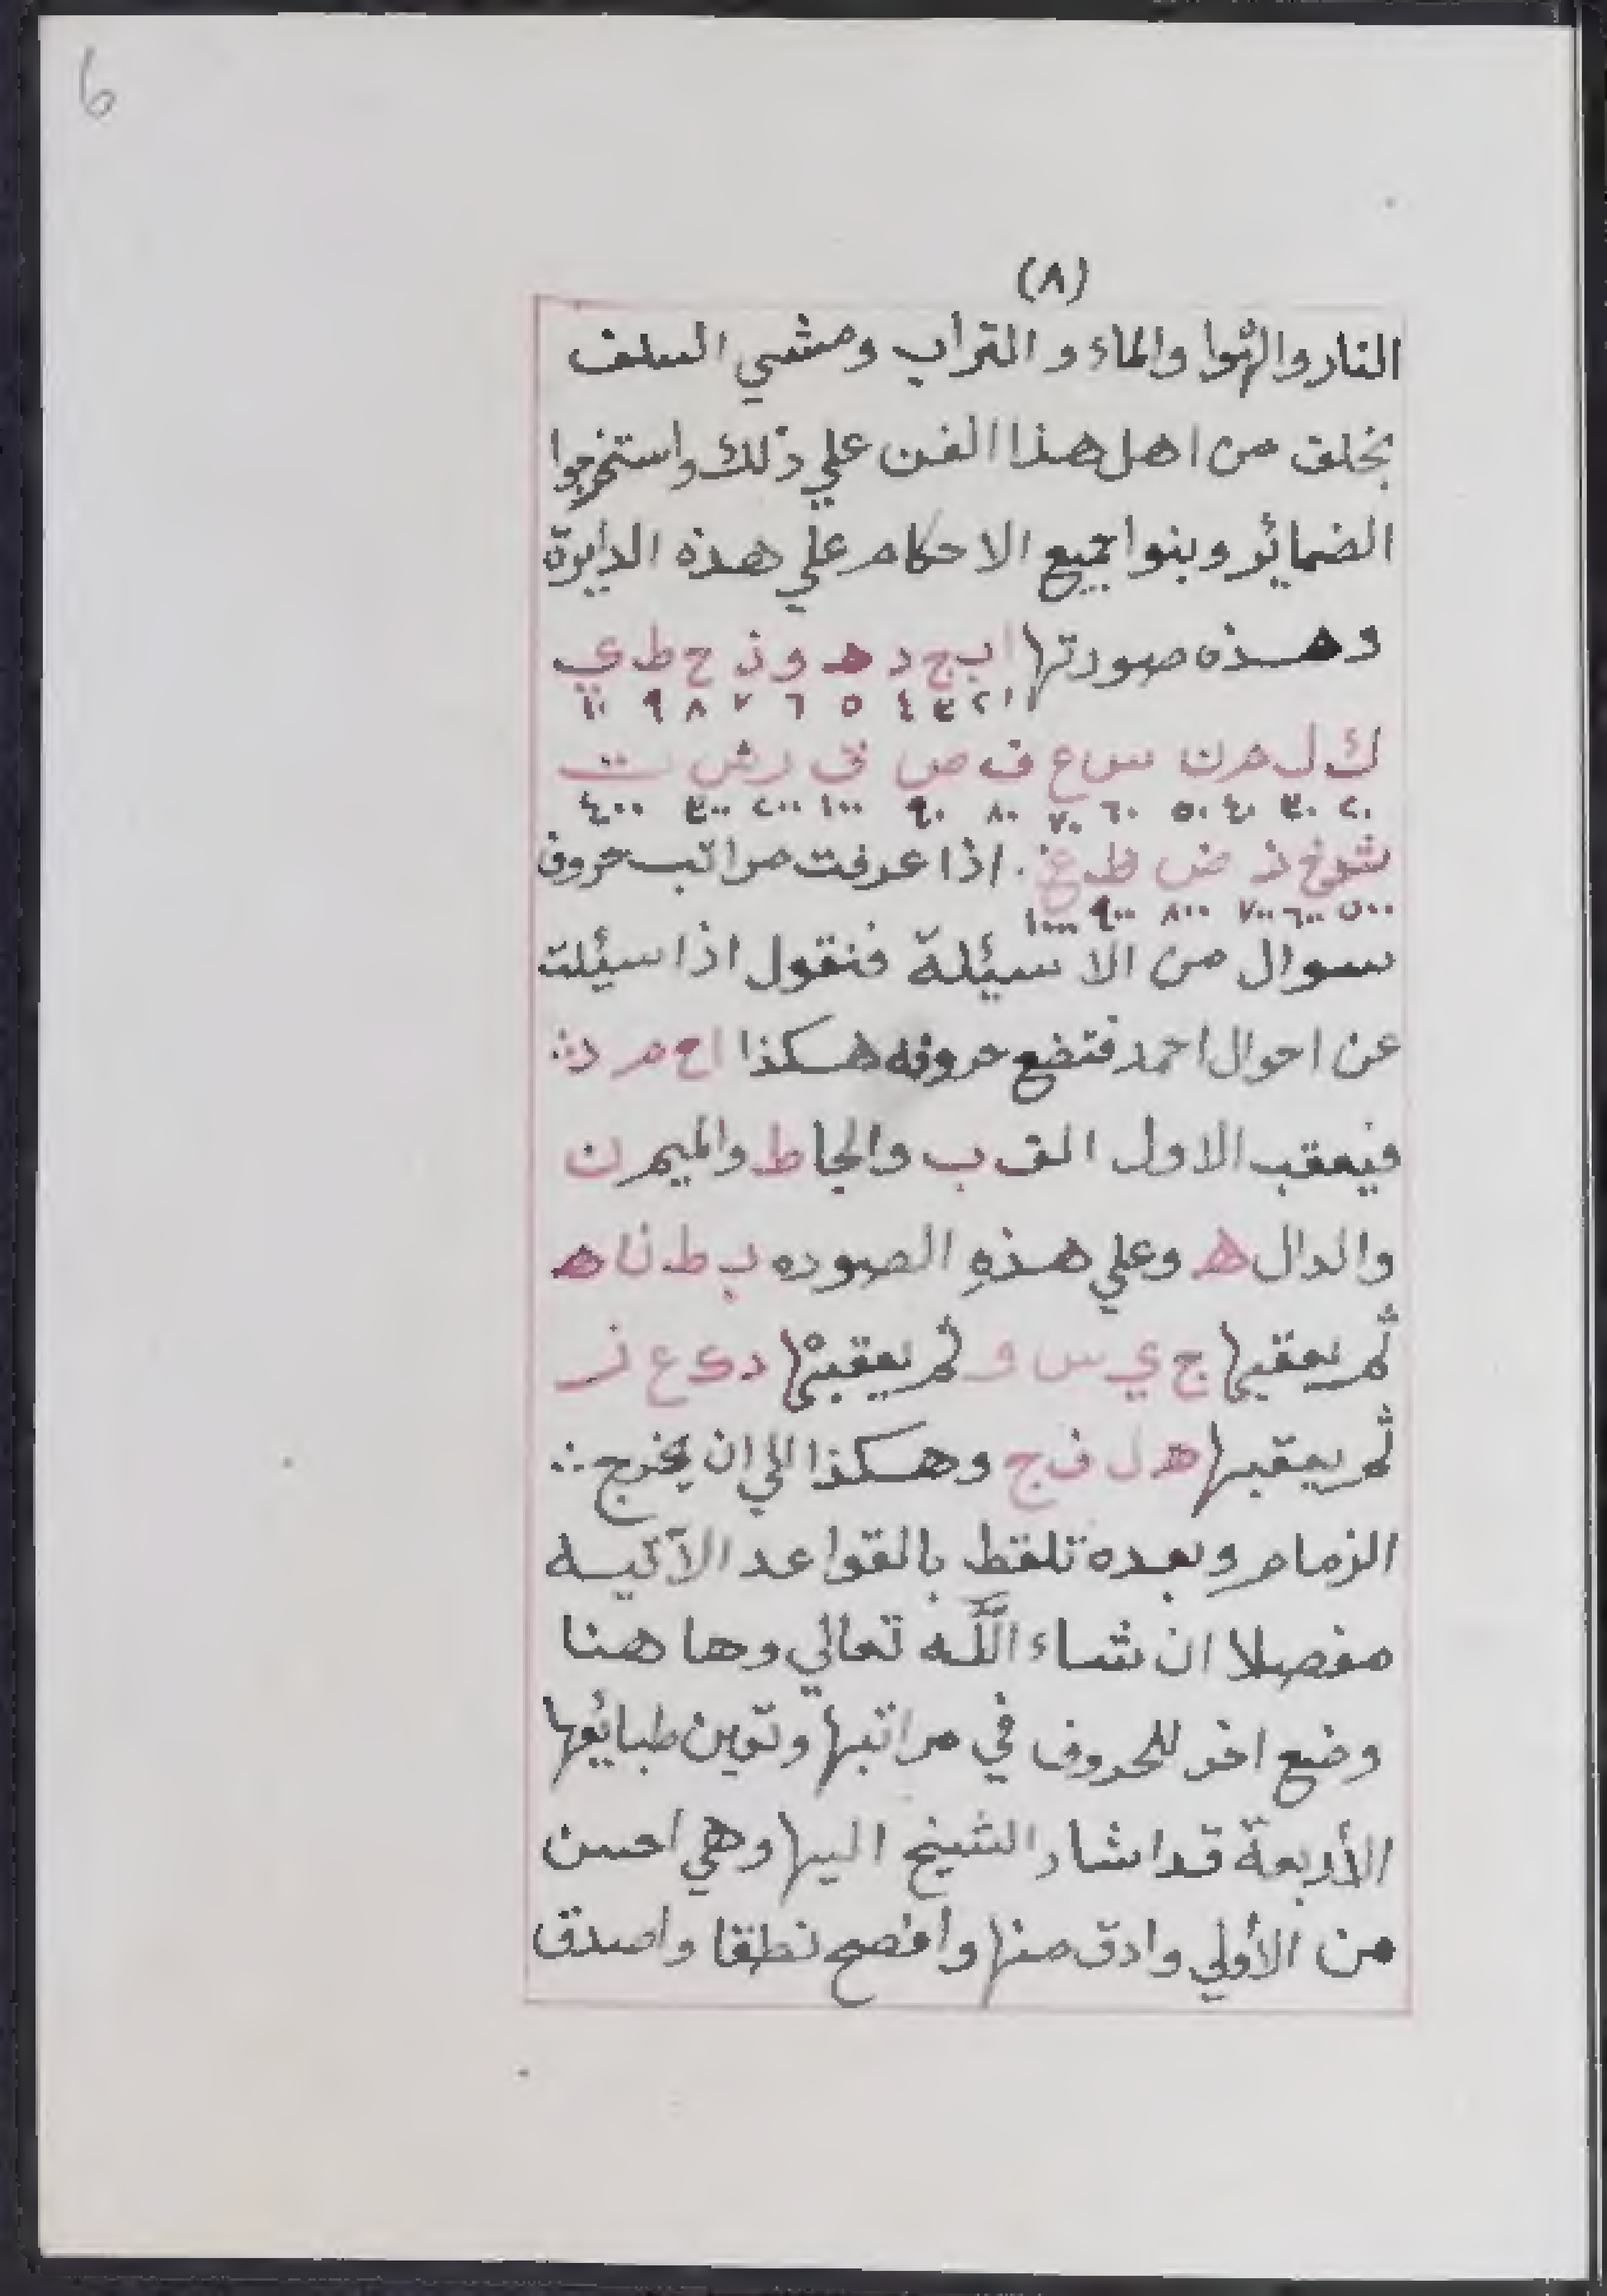 6
(٨)
النار والهوا والماء و التراب ومشي السلف
بخلف من اهل هذا الفن علي ذلك واستخرجوا
الضمائر وبنوا جميع الاحكام علي هذه الدايرة
وهذه صورتها ا ب ج د ه و ز ح ط ي
١ ٢ ٣ ٤ ٥ ٦ ٧ ٨ ٩ ١٠
ك ل م ن س ع ف ص ق ر ش ت
٢٠ ٣٠ ٤٠ ٥٠ ٦٠ ٧٠ ٨٠ ٩٠ ١٠٠ ٢٠٠ ٣٠٠ ٤٠٠
ث خ ذ ض ظ غ . اذا عرفت مراتب حروف
٥٠٠ ٦٠٠ ٧٠٠ ٨٠٠ ٩٠٠ ١٠٠٠
سوال من الاسيئلة فنقول اذا سيئلت
عن احوال احمد فتضع حروفه هكذا ا ح م د ∴
فيعقب الاول الف ب والحا ط والميم ن
والدال ه وعلي هذهِ الصوره ب ط ن ه
ثم يعقبها ج ي س و ثم يعقبها د ك ع ز
ثم يعقبها ه ل ف ح وهكذا الي ان يخرج ∴
الزمام وبعده تلقط بالقواعد الآتيه
مفصلا ان شاء اللَّه تعالي وها هنا
وضع اخر للحروف في مراتبها وتعين طبائعها
الأربعة قد اشار الشيخ اليها وهي احسن
من الأولي وادق منها وأفصح نطقا واصدق